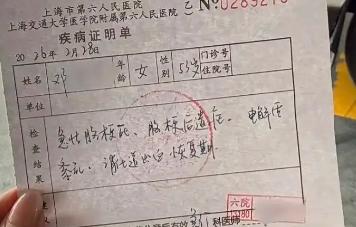 上海市第六人民医院
上海交通大学医学院附属第六人民医院
乙 No 028921
疾病证明单
2026年2月28日
姓名 邓 年龄 女 性别 51岁 门诊号 住院号
单位
检查结果
急性脑梗死、脑梗后遗症。电解质
紊乱、消化道出血 恢复期
六院
科医师